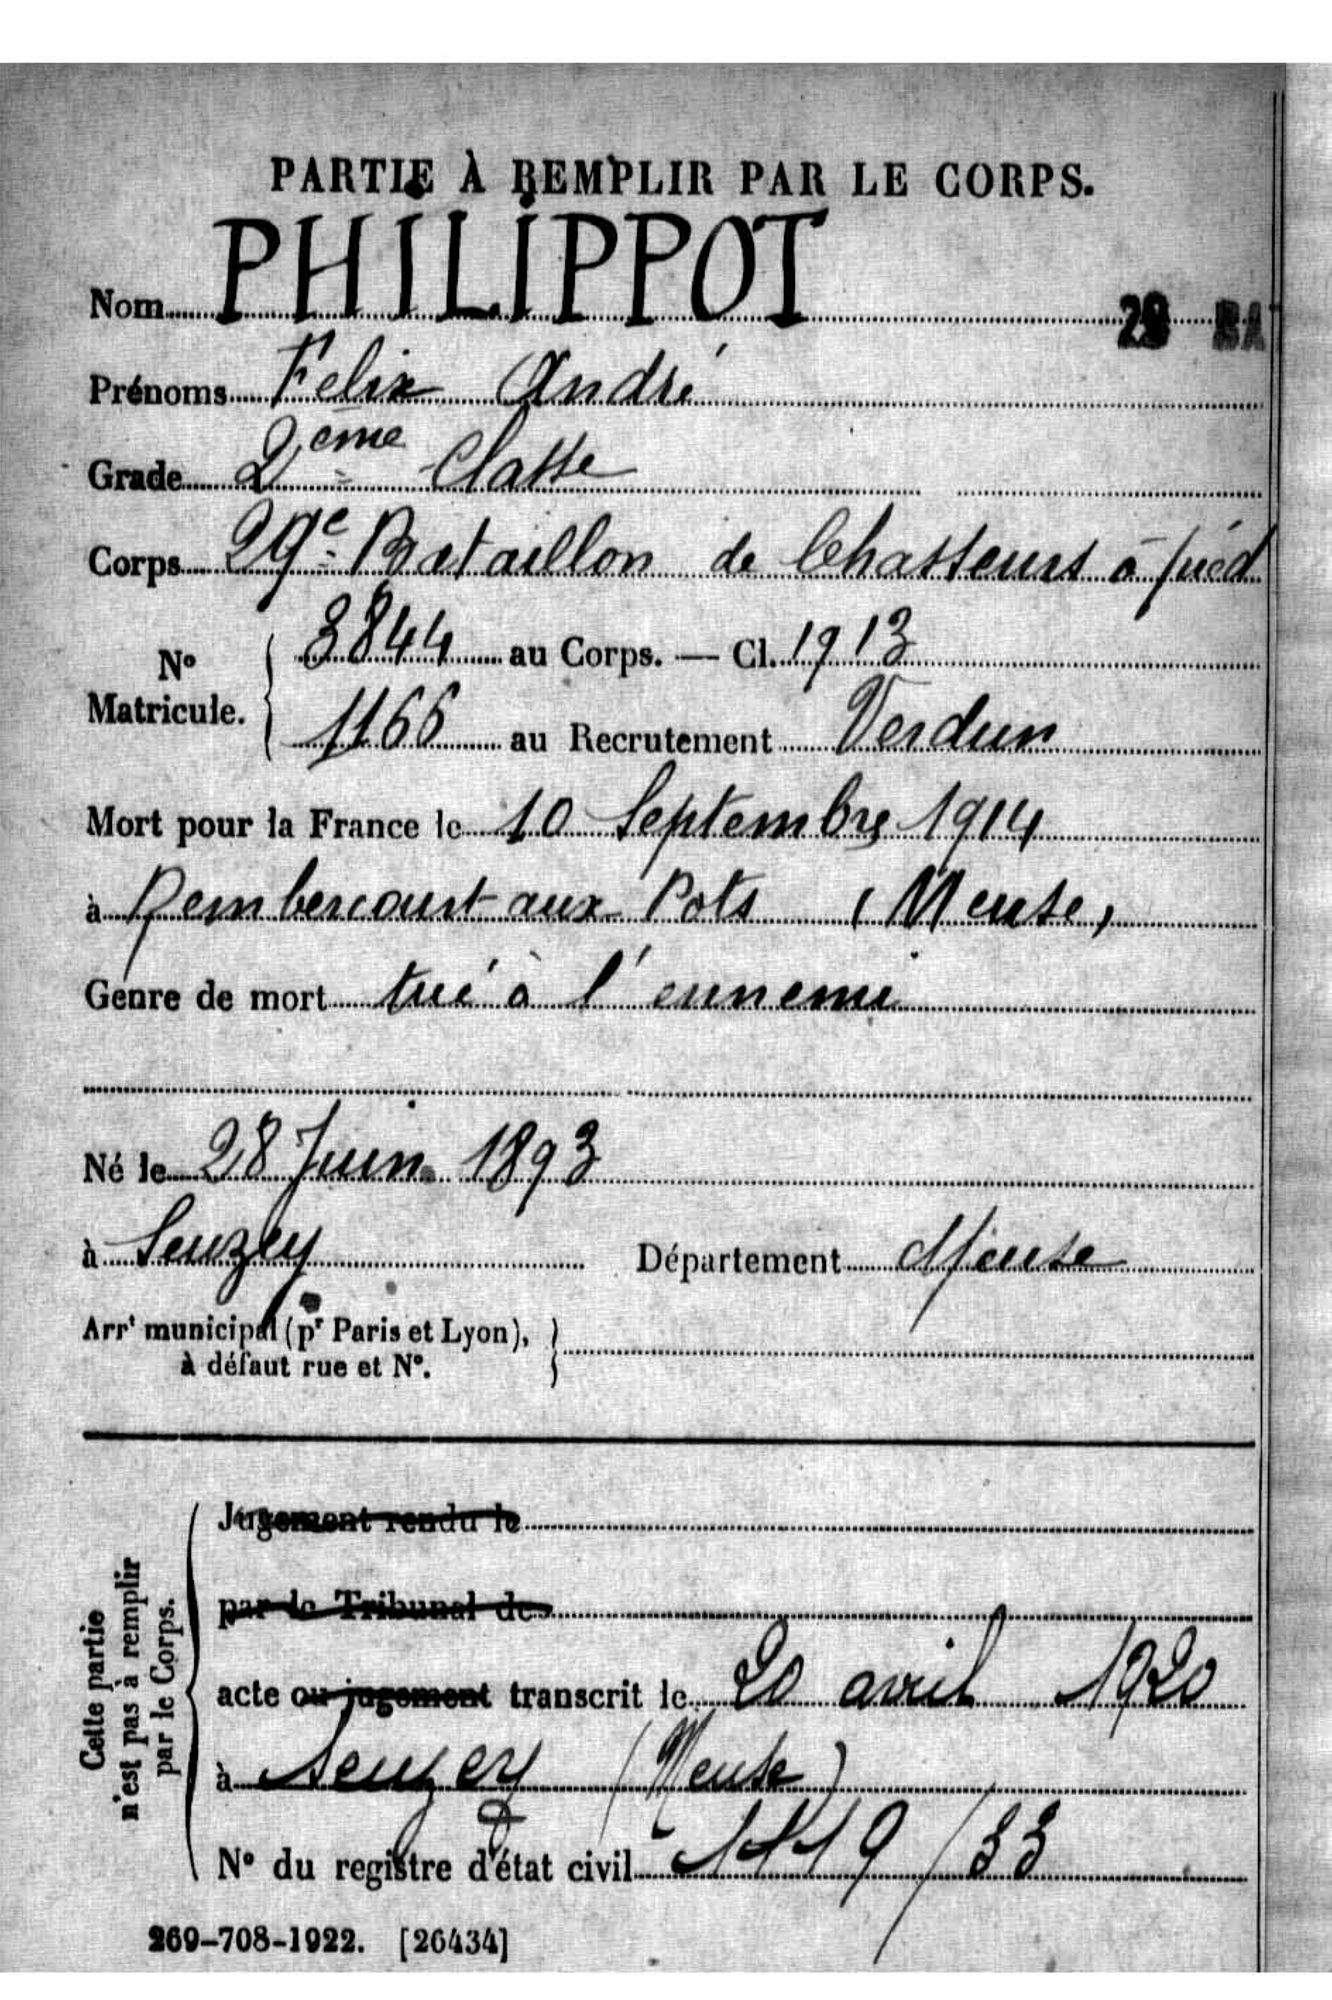 PARTIE À REMPLIR PAR LE CORPS.
Nom PHILIPPOT
29 BA
Prénoms Felix André
Grade 2ème Classe
Corps 29e Bataillon de Chasseurs à pied
No Matricule. 3844 au Corps. — Cl. 1913
1166 au Recrutement Verdun
Mort pour la France le 10 Septembre 1914
à Rembercourt aux Pots (Meuse)
Genre de mort tué à l'ennemi
Né le 28 Juin 1893
à Seuzey Département Meuse
Arrt municipal (pr Paris et Lyon),
à défaut rue et No.
Cette partie
n'est pas à remplir
par le Corps.
Jugement rendu le
par le Tribunal de
acte ou jugement transcrit le 20 avril 1920
à Seuzey (Meuse)
No du registre d'état civil 1119/33
269-708-1922. [26434]